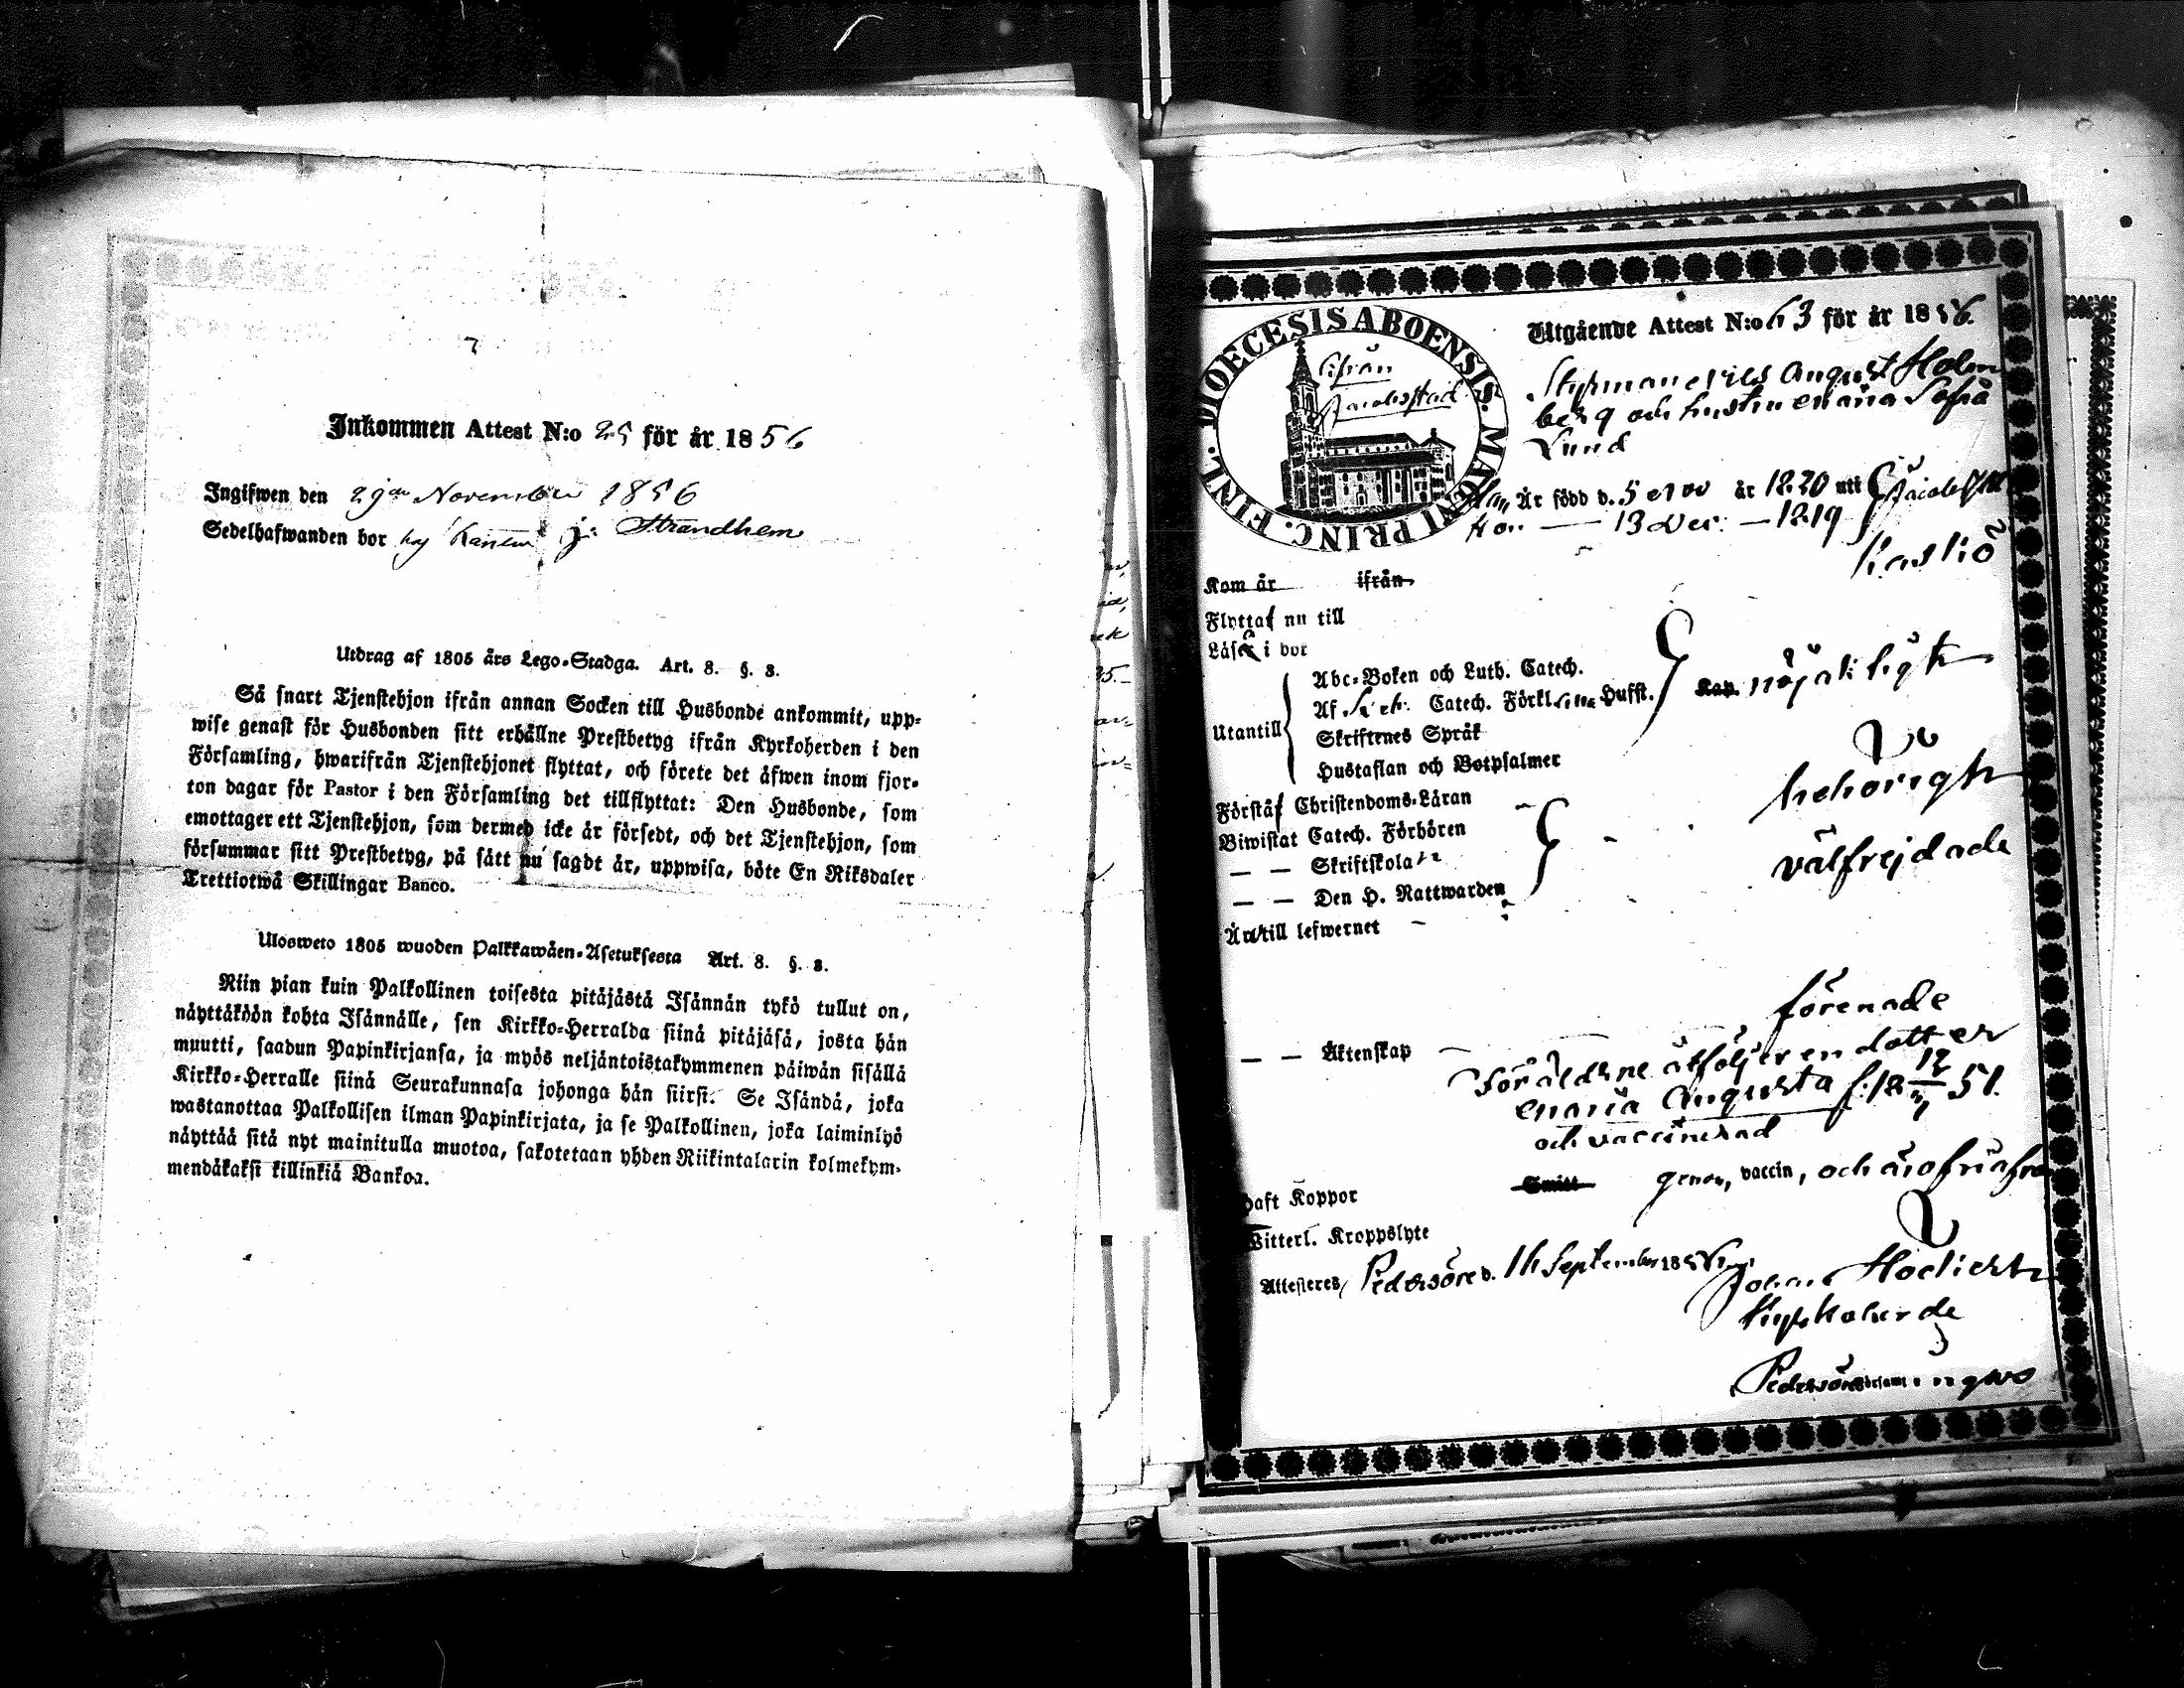 Inkommen Attest N:o 25 för år 1856
Ingifwen den 29de November 1856
Sedelhafwanden bor hos Strandhem
Utdrag af 1805 års Lego-Stadga. Art. 8. §. 3.
Så snart Tjenstehjon ifrån annan Socken till Husbonde ankommit, upp-
wise genast för Husbonden sitt erhållne Prestbetyg ifrån Kyrkoherden i den
Församling, hwarifrån Tjenstehjonet flyttat, och förete det äfwen inom fjor-
ton dagar för Pastor i den Församling det tillflyttat: Den Husbonde, som
emottager ett Tjenstehjon, som dermed icke är försedt, och det Tjenstehjon, som
försummar sitt Prestbetyg, på sätt nu sagdt är, uppwisa, böte En Riksdaler
Trettiotwå Skillingar Banco.
Ulosweto 1805 wuoden Palkkawäen-Asetuksesta Art. 8. §. 3.
Niin pian kuin Palkollinen toisesta pitäjästä Isännän tykö tullut on,
näyttäköön kohta Isännälle, sen Kirkko-Herralda siinä pitäjäsä, josta hän
muutti, saadun Papinkirjansa, ja myös neljäntoistakymmenen päiwän sisällä
Kirkko-Herralle siinä Seurakunnasa johonga hän siirsi. Se Isändä, joka
wastanottaa Palkollisen ilman Papinkirjata, ja se Palkollinen, joka laiminlyö
näyttää sitä nyt mainitulla muotoa, sakotetaan yhden Riikintalarin kolmekym-
mendäkaksi killinkiä Bankoa.
DIOECESIS ABOENSIS. MAGNI PRINC. FINL.
Ifrån
Jacobstad
Utgående Attest N:o 63 för år 1856.
Styrman Nils August Holm
berg och hustru Maria Sofia
Lund
Han Är född d. 5 Nov år 1820 uti Jacobstad
Hon — 13 Dec. — 1819
Kaskö
Kom år ifrån
Flytta nu till
Läsa i bok
Abc-Boken och Luth. Catech.
Af Catech. Förkl. Hufst. Kap. nöjaktigt
Utantill
Skriftenes Språk
Hustaflan och Botpsalmer
Förstå Christendoms-Läran
behörigt
Biwistat Catech. Förhören
— — Skriftskola
välfrejdade
— — Den H. Nattwarden
Är till lefwernet
förenade
— — Äktenskap
Föräldrne åtföljer en dotter
Maria Augusta f. 18 51.
och vaccinerad
Haft Koppor Smitt genom vaccin, och äro fria från
Witterl. Kroppslyte
Attesteres, Pedersöre d. 16 September 1856
Johan
Kyrkoherde
Pedersöre församlings